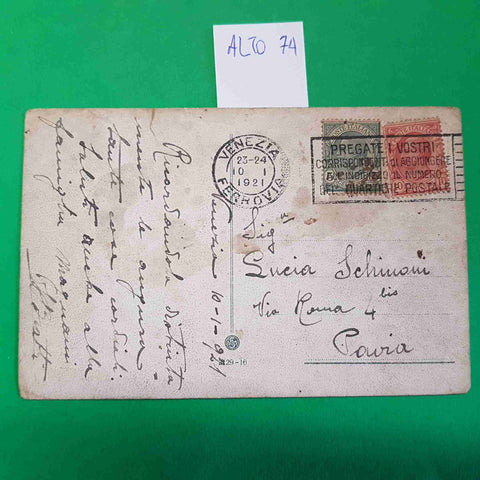 ALTO 74
VENEZIA
23-24
10 I
1921
FERROVIA
PREGATE I VOSTRI
CORRISPONDENTI DI AGGIUNGERE
ALL'INDIRIZZO IL NUMERO
DEL QUARTIERE POSTALE
Venezia 10-1-921
Ricordandola distinta
mente le auguro
tante cose cordiali
Saluti anche alla
famiglia Magnani
Sig.
Lucia Schinoni
Via Roma 4 bis
Pavia
129-16